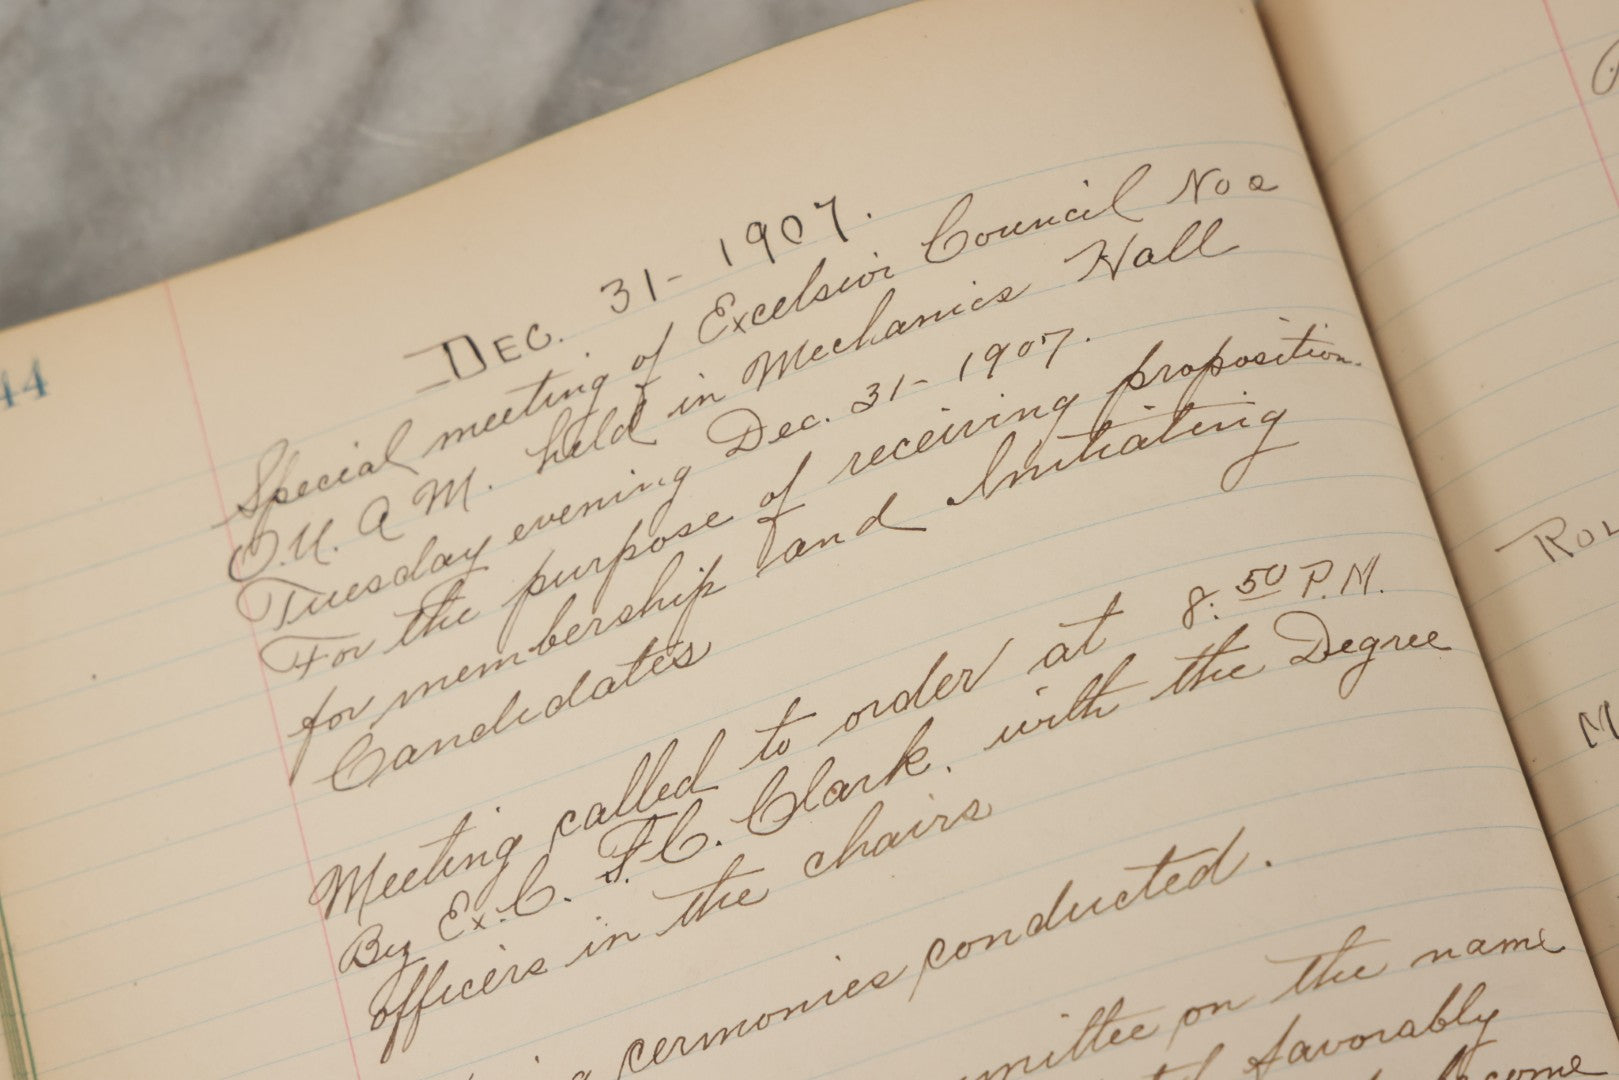 44
DEC. 31- 1907.
Special meeting of Excelsior Council No 2
O.U. A M. held in Mechanics Hall
Tuesday evening Dec. 31- 1907.
For the purpose of receiving proposition
for membership and Initiating
Candidates
Meeting called to order at 8:50 P.M.
By Ex. C. F. C. Clark. with the Degree
officers in the chairs
cermonies conducted.
on the name
favorably